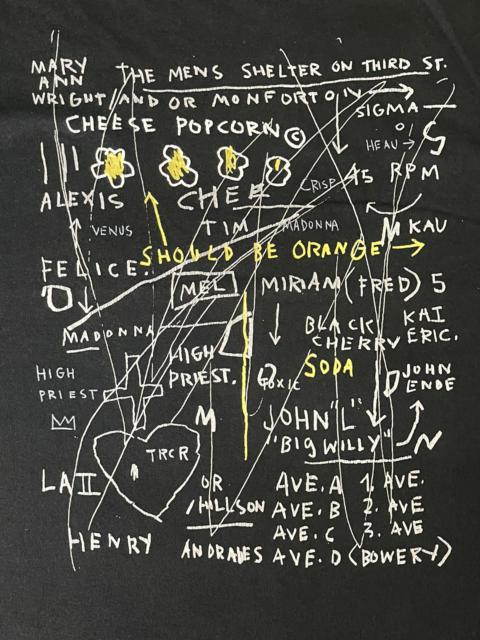 MARY
ANN
THE MENS SHELTER ON THIRD ST.
WRIGHT/AND OR MONFORTO IV
SIGMA
CHEESE POPCORN ©
HEAU
ALEXIS
CHEE
CRISP
45 RPM
VENUS
TIM
MADONNA
M KAU
SHOULD BE ORANGE
FELICE.
MEL
MIRIAM (FRED) 5
MADONNA
BLACK
CHERRY
KAI
ERIC.
HIGH
PRIEST.
SODA
HIGH
PRIEST
JOHN
ENDE
M
JOHN "L"
"BIG WILLY"
N
TRCR
LA II
OR
/HILLSON
AVE. A 1. AVE.
AVE. B 2. AVE
AVE. C 3. AVE
HENRY
ANDRADES AVE. D (BOWERY)